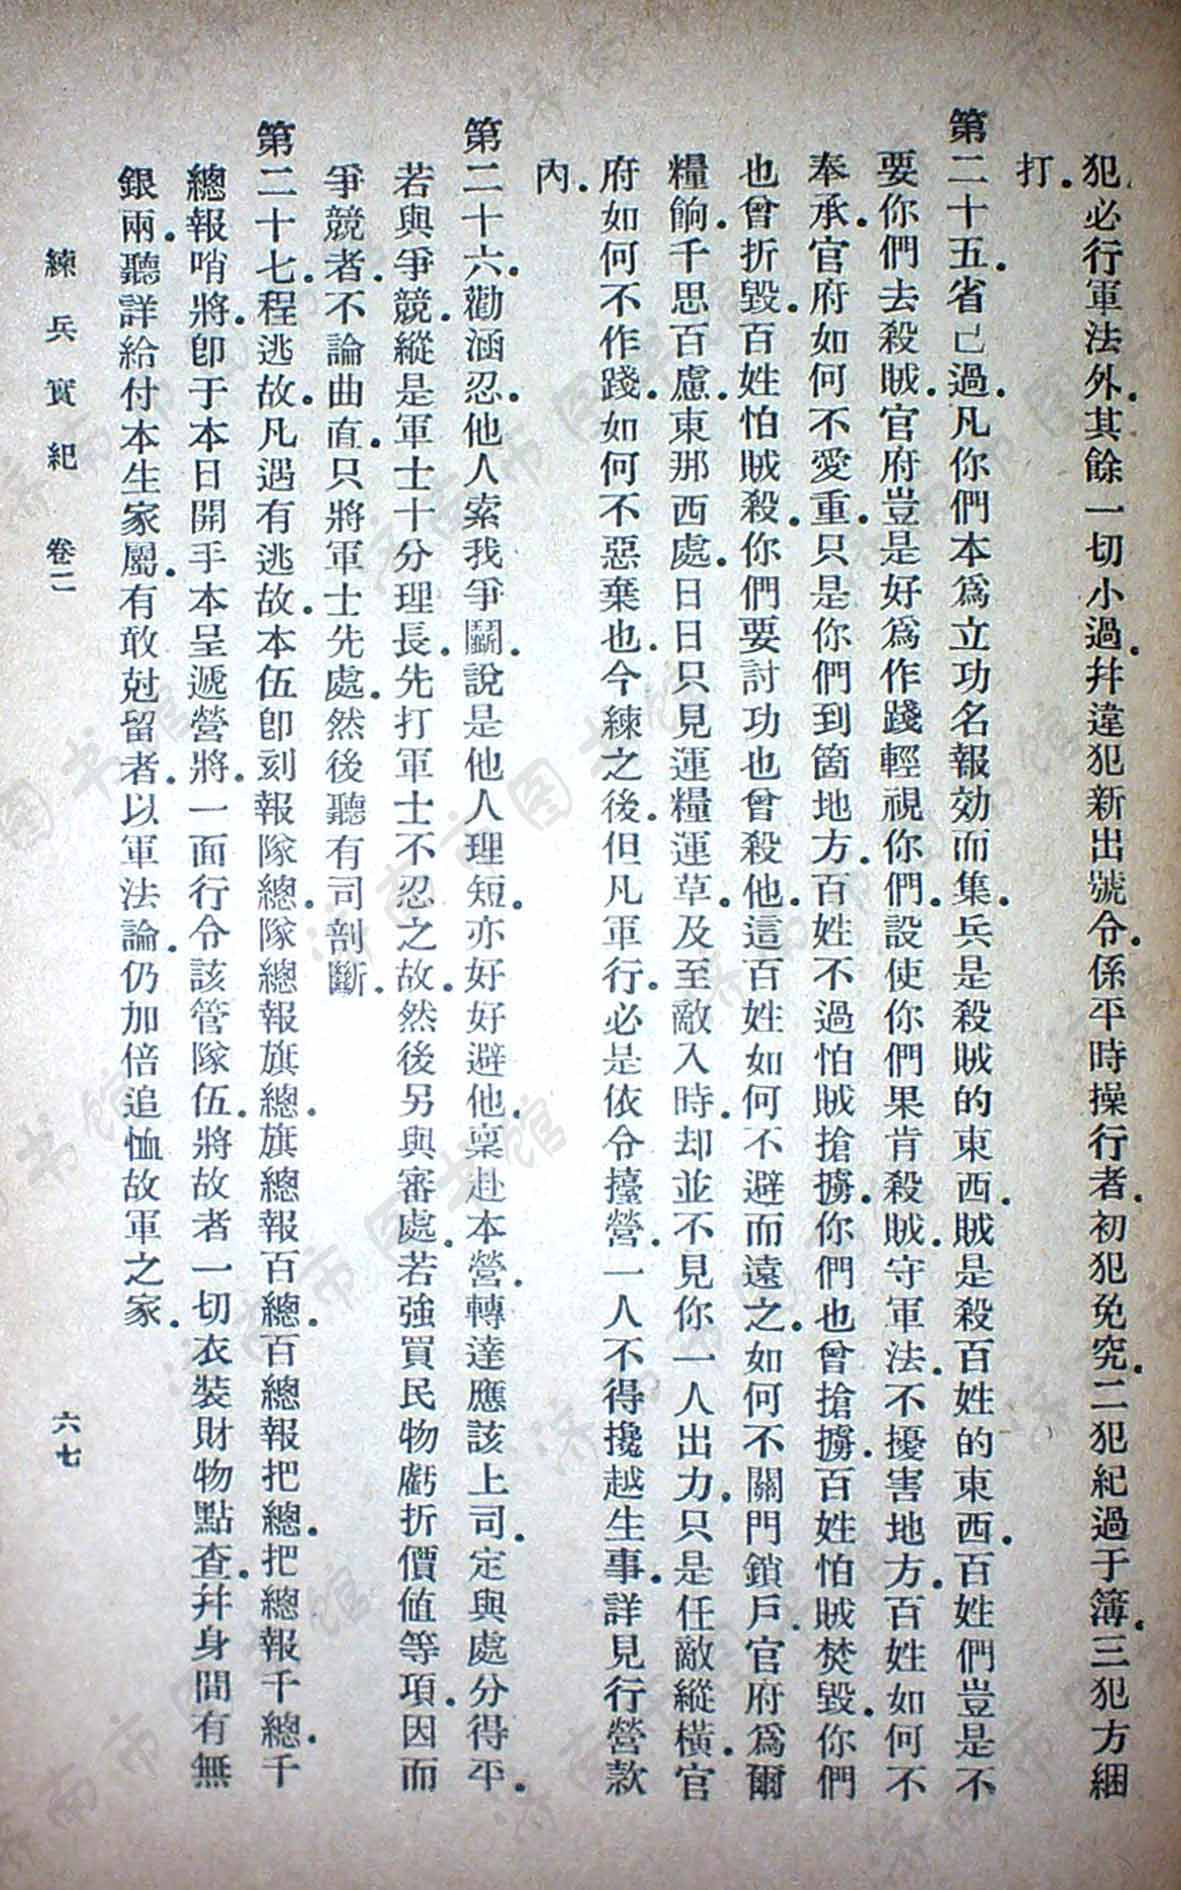 犯必行軍法外.其餘一切小過.幷違犯新出號令.係平時操行者.初犯免究.二犯紀過于簿.三犯方綑
打.
第二十五.省己過.凡你們本爲立功名報効而集.兵是殺賊的東西.賊是殺百姓的東西.百姓們豈是不
要你們去殺賊.官府豈是好爲作踐輕視你們.設使你們果肯殺賊.守軍法.不擾害地方.百姓如何不
奉承.官府如何不愛重.只是你們到箇地方.百姓不過怕賊搶擄.你們也曾搶擄.百姓怕賊焚毀.你們
也曾折毀.百姓怕賊殺.你們要討功也曾殺他.這百姓如何不避而遠之.如何不關門鎖戶.官府爲爾
糧餉.千思百慮.東那西處.日日只見運糧運草.及至敵入時.却並不見你一人出力.只是任敵縱橫.官
府如何不作踐.如何不惡棄也.今練之後.但凡軍行.必是依令擡營.一人不得攙越生事.詳見行營款
內.
第二十六.勸涵忍.他人索我爭鬭.說是他人理短.亦好好避他.稟赴本營.轉達應該上司.定與處分得平.
若與爭競.縱是軍士十分理長.先打軍士不忍之故.然後另與審處.若強買民物虧折價値等項.因而
爭競者.不論曲直.只將軍士先處.然後聽有司剖斷.
第二十七.程逃故.凡遇有逃故.本伍卽刻報隊總.隊總報旗總.旗總報百總.百總報把總.把總報千總.千
總報哨將.卽于本日開手本呈遞營將.一面行令該管隊伍.將故者一切衣裝財物點查.幷身間有無
銀兩.聽詳給付本生家屬.有敢尅留者.以軍法論.仍加倍追恤故軍之家.
練兵實紀 卷二 六七